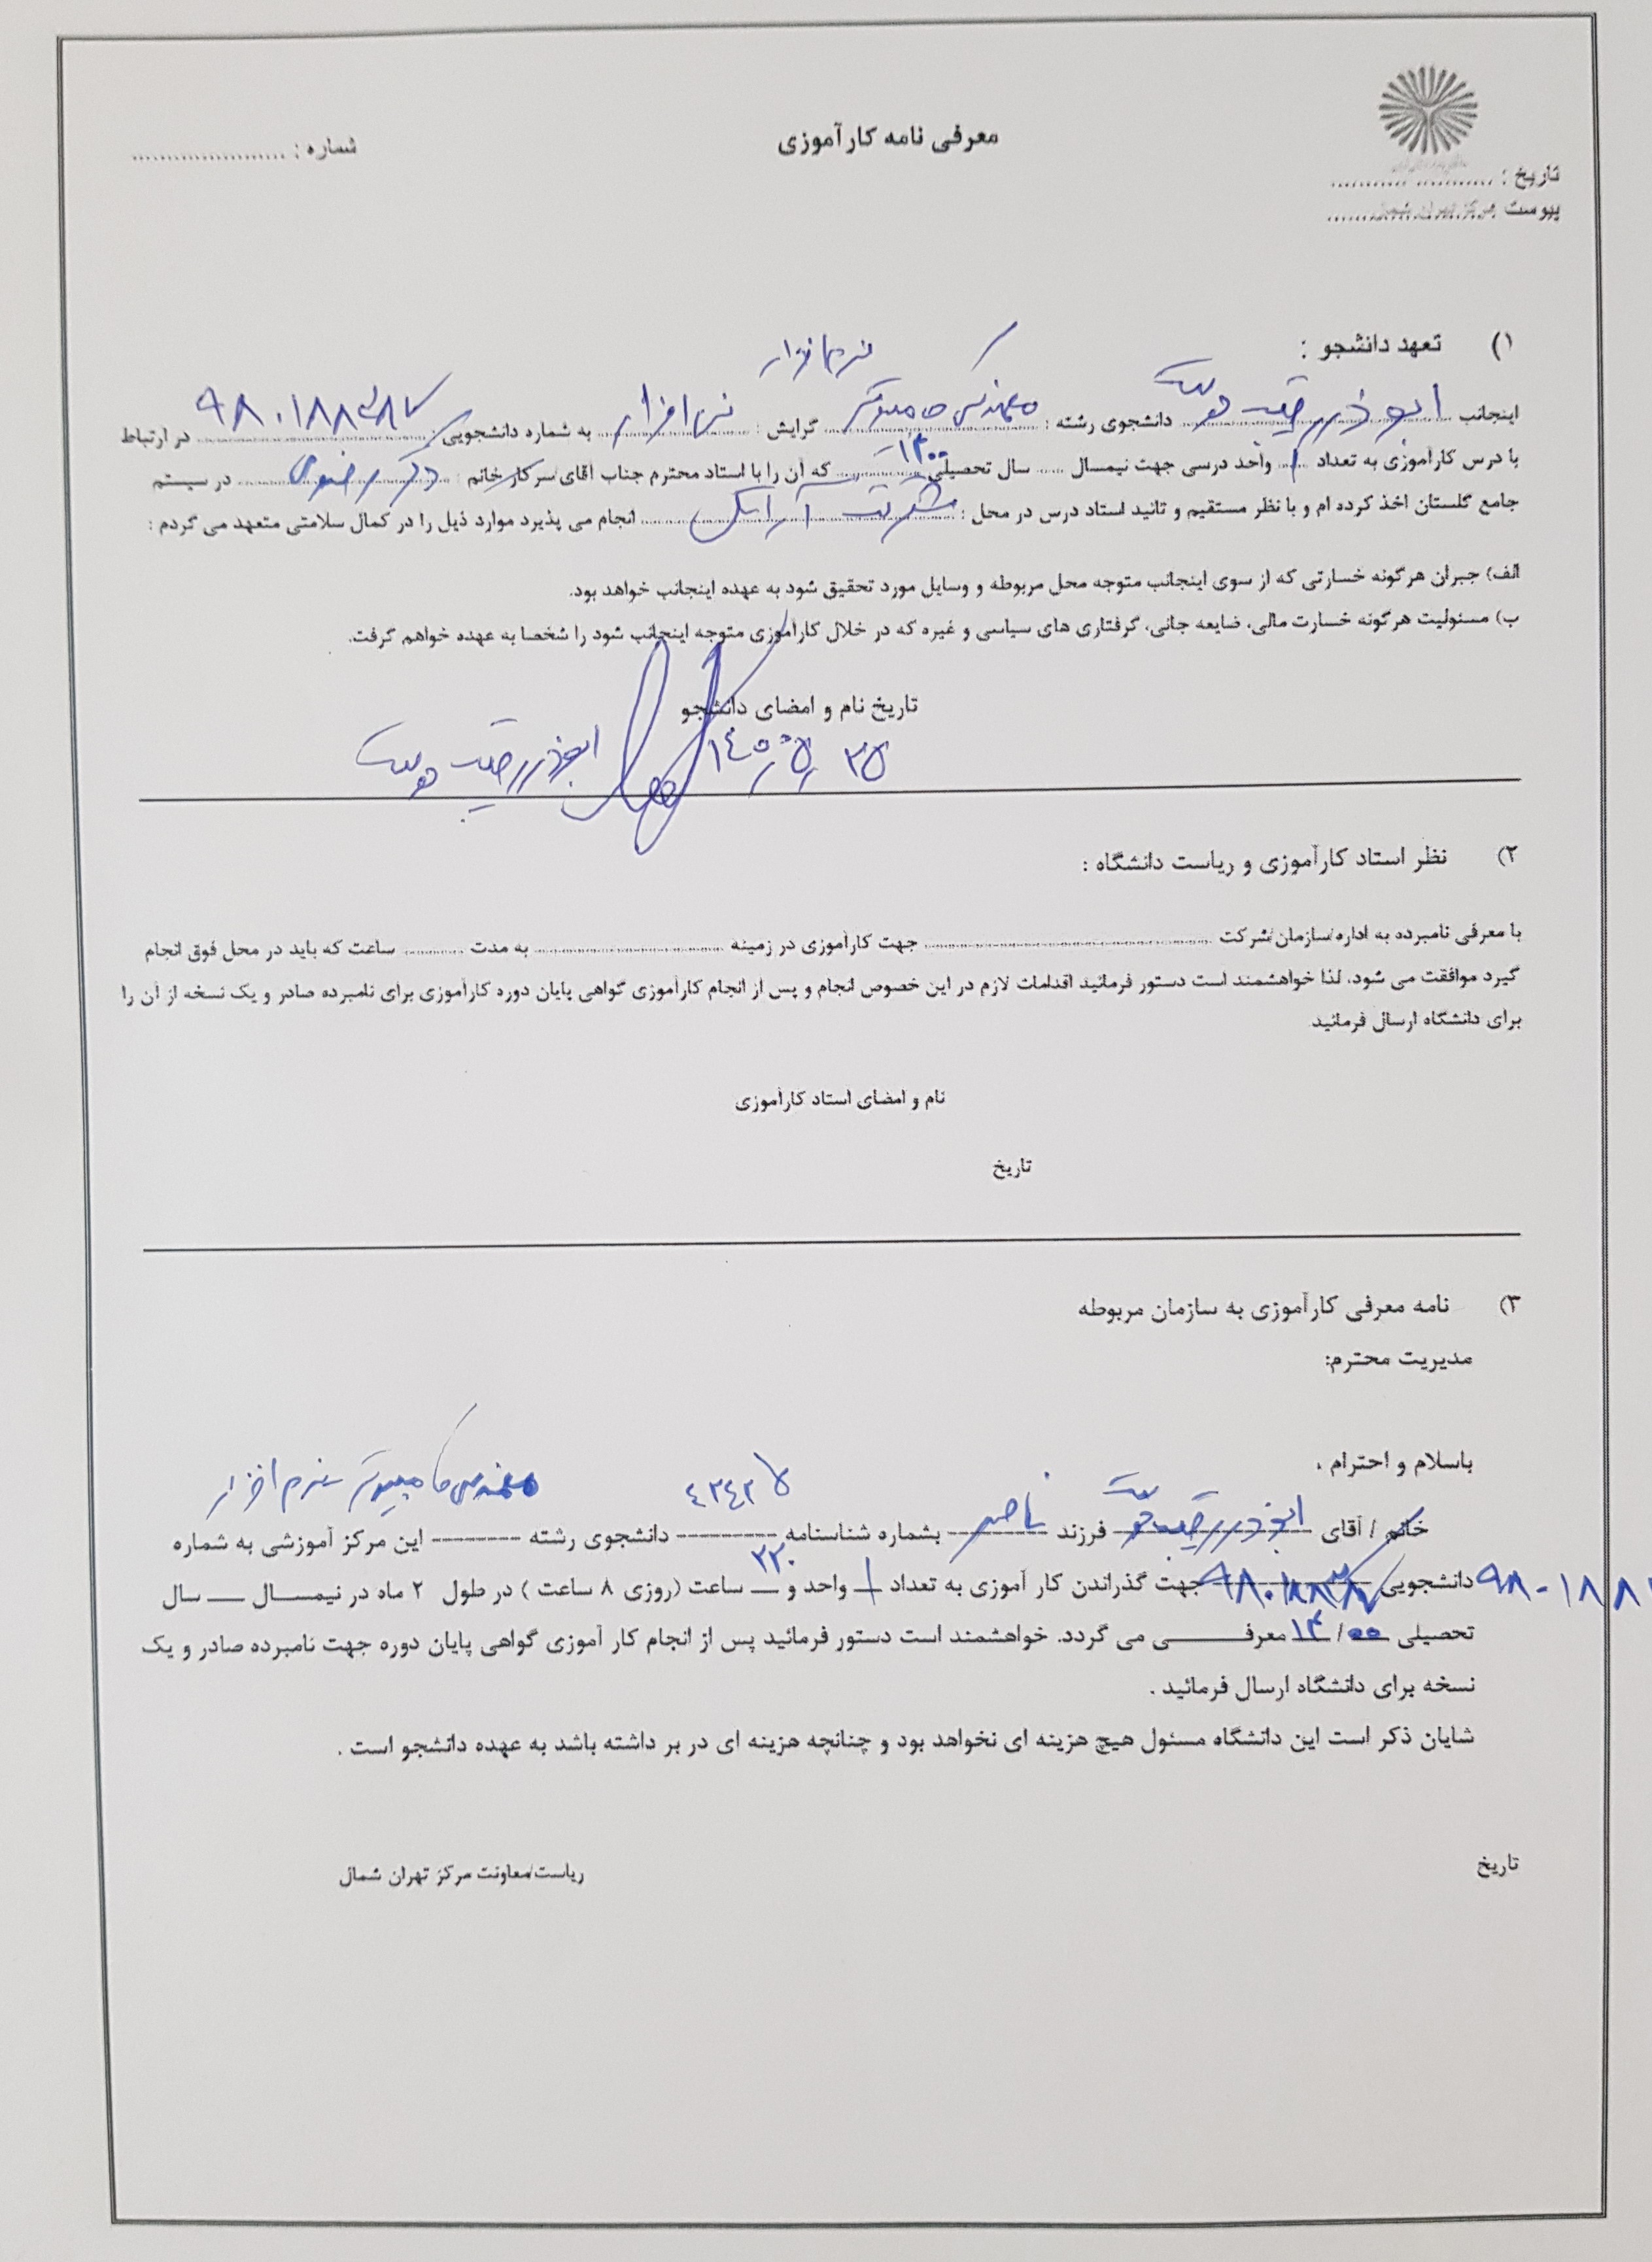 معرفی نامه کارآموزی
شماره : ......................
تاریخ : ......................
پیوست مرکز تهران شمال
۱) تعهد دانشجو :
نرم افزار
اینجانب ابوذر رقیب دوست دانشجوی رشته : مهندسی کامپیوتر گرایش : نرم افزار به شماره دانشجویی : در ارتباط
با درس کارآموزی به تعداد ۱ واحد درسی جهت نیمسال ..... سال تحصیلی ۱۴۰۰ که آن را با استاد محترم جناب آقای سرکار خانم : دکتر رضوی در سیستم
جامع گلستان اخذ کرده ام و با نظر مستقیم و تائید استاد درس در محل : شرکت انجام می پذیرد موارد ذیل را در کمال سلامتی متعهد می گردم :
الف) جبران هرگونه خسارتی که از سوی اینجانب متوجه محل مربوطه و وسایل مورد تحقیق شود به عهده اینجانب خواهد بود.
ب) مسئولیت هرگونه خسارت مالی، ضایعه جانی، گرفتاری های سیاسی و غیره که در خلال کارآموزی متوجه اینجانب شود را شخصا به عهده خواهم گرفت.
تاریخ نام و امضای دانشجو
ابوذر رقیب دوست
۲) نظر استاد کارآموزی و ریاست دانشگاه :
با معرفی نامبرده به اداره/سازمان/شرکت ........................ جهت کارآموزی در زمینه ........................ به مدت ............ ساعت که باید در محل فوق انجام
گیرد موافقت می شود، لذا خواهشمند است دستور فرمائید اقدامات لازم در این خصوص انجام و پس از انجام کارآموزی گواهی پایان دوره کارآموزی برای نامبرده صادر و یک نسخه از آن را
برای دانشگاه ارسال فرمائید
نام و امضای استاد کارآموزی
تاریخ
۳) نامه معرفی کارآموزی به سازمان مربوطه
مدیریت محترم:
باسلام و احترام ،
خانم / آقای ابوذر رقیب دوست فرزند ناصر بشماره شناسنامه دانشجوی رشته مهندسی کامپیوتر نرم افزار این مرکز آموزشی به شماره
دانشجویی جهت گذراندن کار آموزی به تعداد ۱ واحد و ساعت (روزی ۸ ساعت ) در طول ۲ ماه در نیمسال ___ سال
تحصیلی ۱۴/۰۰ معرفی می گردد. خواهشمند است دستور فرمائید پس از انجام کار آموزی گواهی پایان دوره جهت نامبرده صادر و یک
نسخه برای دانشگاه ارسال فرمائید .
شایان ذکر است این دانشگاه مسئول هیچ هزینه ای نخواهد بود و چنانچه هزینه ای در بر داشته باشد به عهده دانشجو است .
تاریخ
ریاست/معاونت مرکز تهران شمال